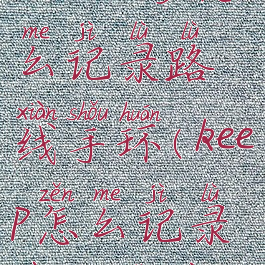 me jì lù lù
么记录路
xiàn shǒu huán
线手环(kee
zěn me jì lù
p怎么记录